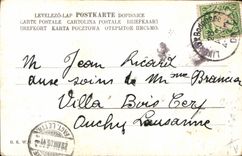 LEVELEZŐ-LAP POSTKARTE DOPISNICE
CARTE POSTALE CARTOLINA POSTALE BRIEFKAART
BREFKORT KARTA POCZTOWA ОТКРЫТОЕ ПИСЬМО.
M Jean Ricard
aux soins de Mme
Villa Bois Cerf
Ouchy Lausanne